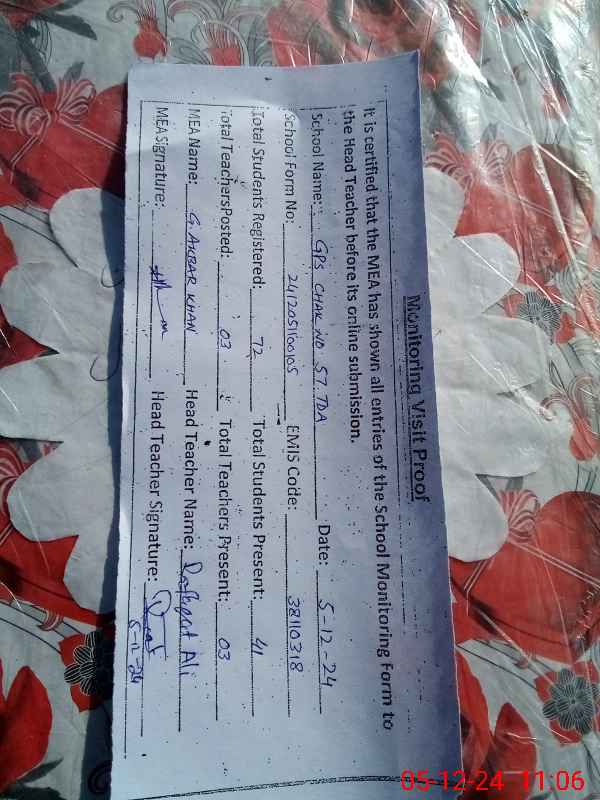 Monitoring Visit Proof
It is certified that the MEA has shown all entries of the School Monitoring Form to
the Head Teacher before its online submission.
School Name: GPS CHAK NO 57. TDA Date: 5-12-24
School Form No: EMIS Code: 38110318
Total Students Registered: 72 Total Students Present: 41
Total Teachers Posted: 03 Total Teachers Present: 03
MEA Name: G. AKBAR KHAN Head Teacher Name: Ali
MEA Signature: Head Teacher Signature:
05-12-24 11:06